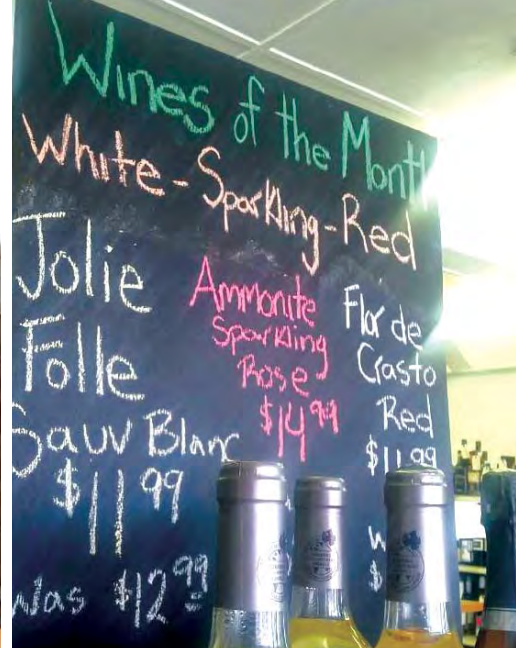 Wines of the Month
White-Sparkling-Red
Jolie
Folle
Sauv Blanc
$11.99
Was $12.99
Ammonite
Sparkling
Rose
$14.99
Flor de
Crasto
Red
$11.99
W
$